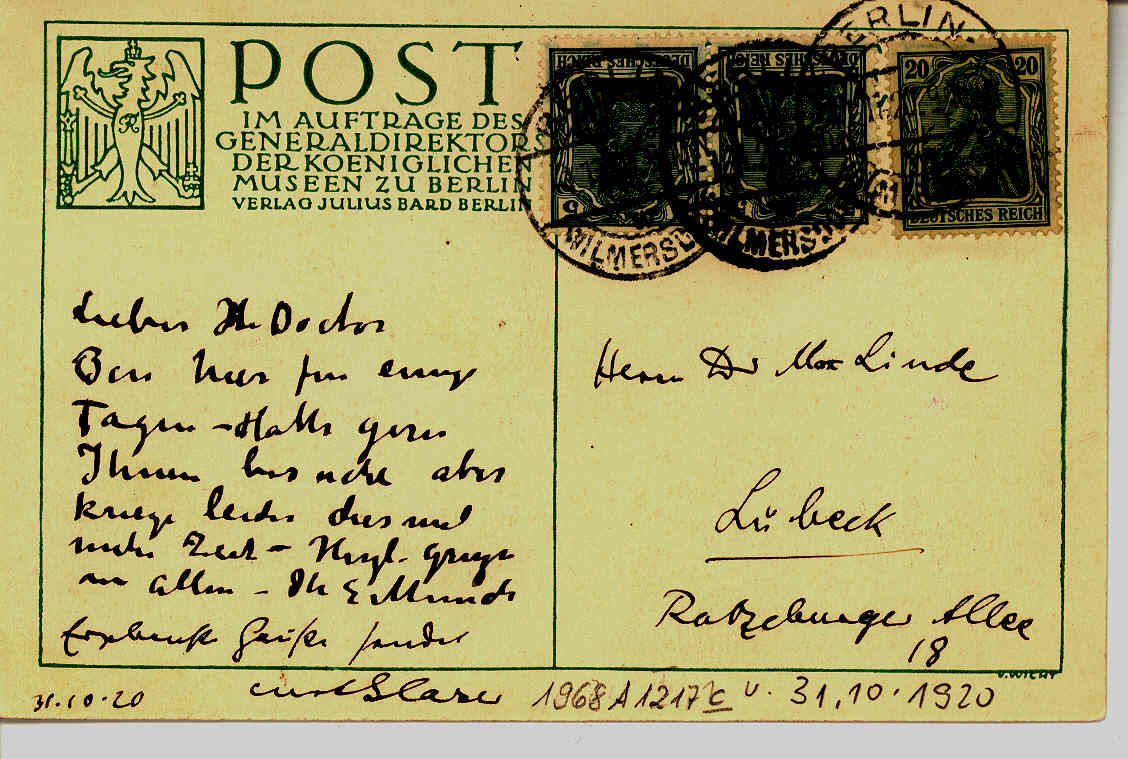 POST
IM AUFTRAGE DES
GENERALDIREKTORS
DER KOENIGLICHEN
MUSEEN ZU BERLIN
VERLAG JULIUS BARD BERLIN
DEUTSCHES REICH
DEUTSCHES REICH
20 20
DEUTSCHES REICH
BERLIN-
WILMERSD
Lieber Hr Doctor
Bin hier für einige
Tagen – Hatte gern
Ihnen besucht aber
kriege leider dies mal
nicht Zeit – Herzl. Grüsse
an allen – Ihr E Munch
Ergebenste Grüße sendet
Curt Glaser
Herrn Dr Max Linde
Lübeck
Ratzeburger Allee
18
31.10.20
1968 A 1217 c v. 31.10.1920